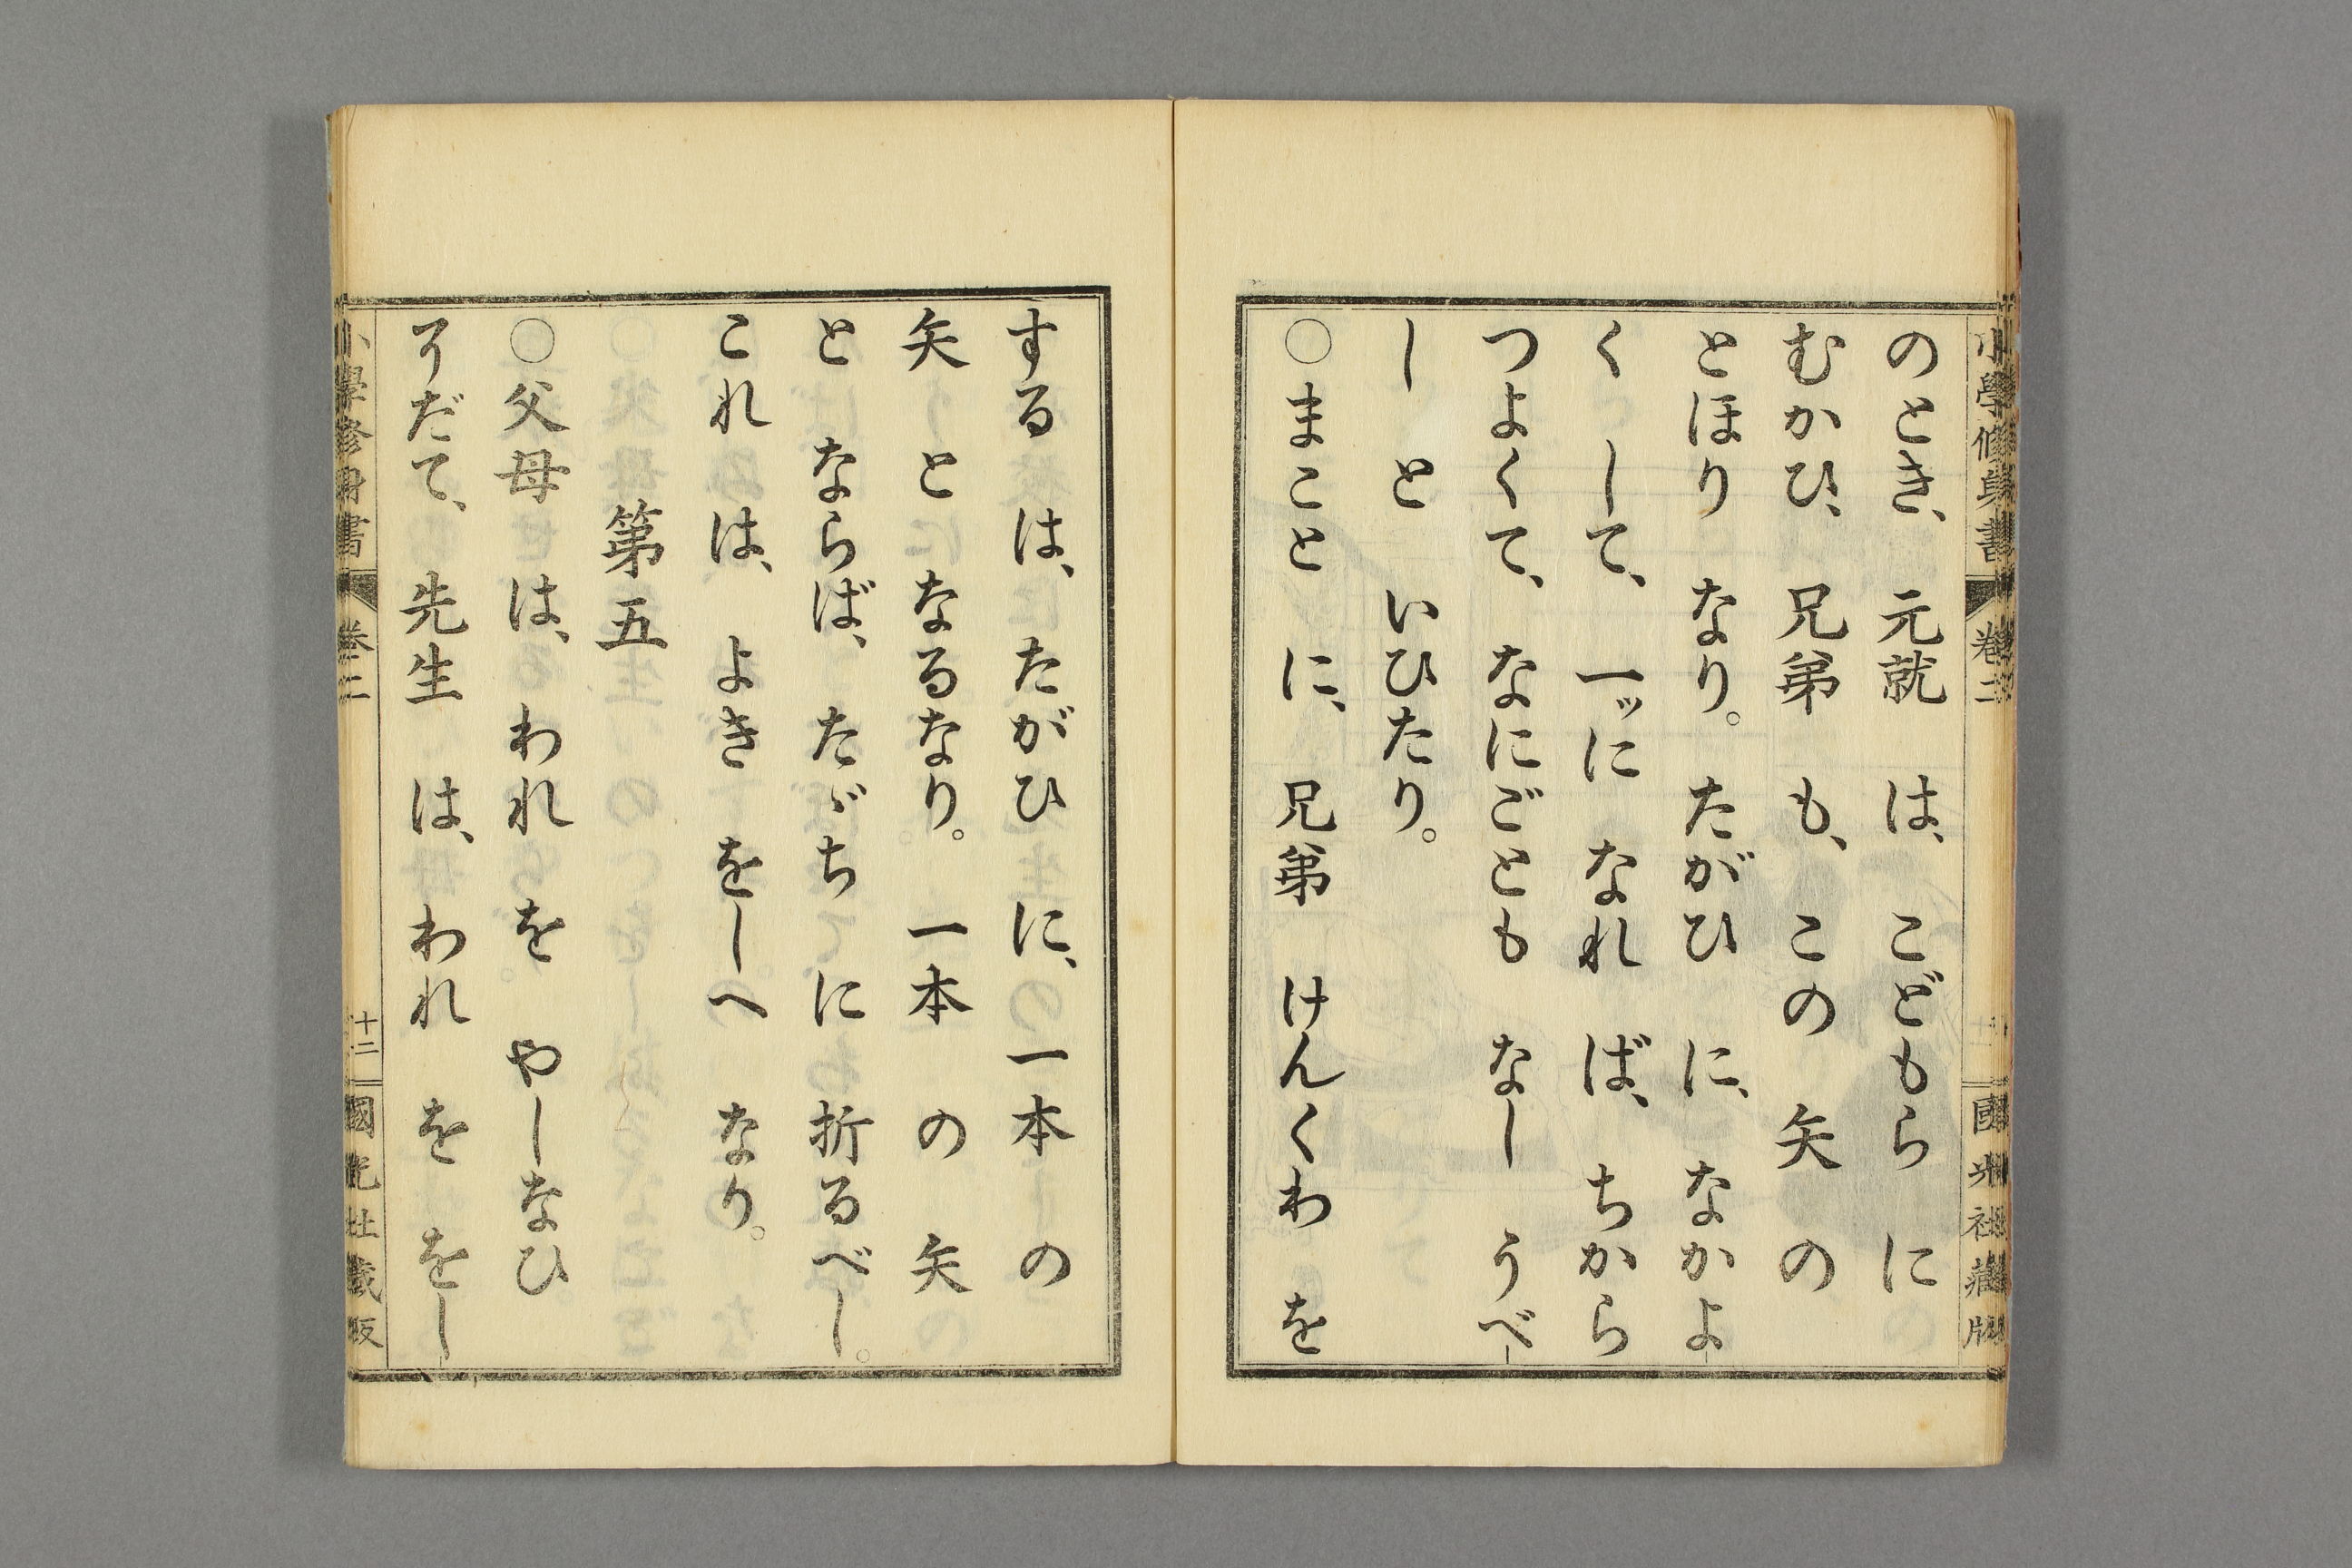 小學修身書 卷二 國光社藏版
のとき、 元就 は、 こどもら に
むかひ、 兄弟 も、 この 矢 の
とほり なり。 たがひ に、 なかよ
く して、 一ッに なれ ば、 ちから
つよくて、 なにごとも なし うべ
し と いひたり。
○まこと に、 兄弟 けんくわ を
する は、 たがひ に、 一本 の
矢 と なるなり。 一本 の 矢
と ならば、 たゞち に 折るべし。
これ は、 よき をしへ なり。
第五
○父母 は、 われ を やしなひ
そだて、 先生 は、 われ を をし
小學修身書 卷二 十二 國光社藏版